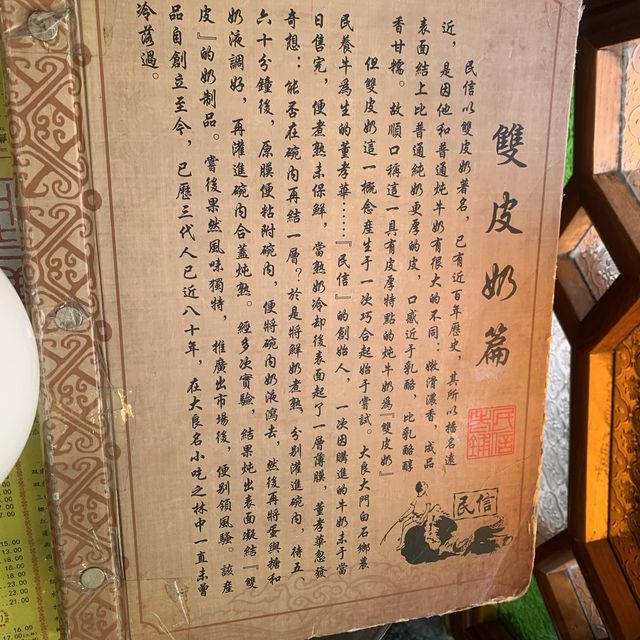 雙皮奶篇
民信老鋪
民信以雙皮奶著名，已有近百年歷史，其所以播名遠
近，是因他和普通炖牛奶有很大的不同：嫩滑濃香，成品
表面結上比普通純奶更厚的皮，口感近于乳酪，比乳酪醇
香甘糯。故順口稱這一具有皮厚特點的炖牛奶爲『雙皮奶』
但雙皮奶這一概念産生于一次巧合起始于嘗試。大良大門白石鄉農
民養牛爲生的董孝華……『民信』的創始人，一次因購進的牛奶未于當
日售完，便煮熟未保鮮，當熟奶冷却後表面起了一層薄膜，董孝華忽發
奇想：能否在碗内再結一層？於是將鮮奶煮熟，分别灌進碗内，待五
六十分鐘後，原膜便粘附碗内，便將碗内奶液瀉去，然後再將蛋與糖和
奶液調好，再灌進碗内合蓋炖熟。經多次實驗，結果炖出表面凝結『雙
皮』的奶制品。嘗後果然風味獨特，推廣出市場後，便别領風騷。該産
品自創立至今，已歷三代人已近八十年，在大良名小吃之林中一直未曾
冷落過。
民信
15.00
13.00
18.00
18.00
23.00
21.00
16.00